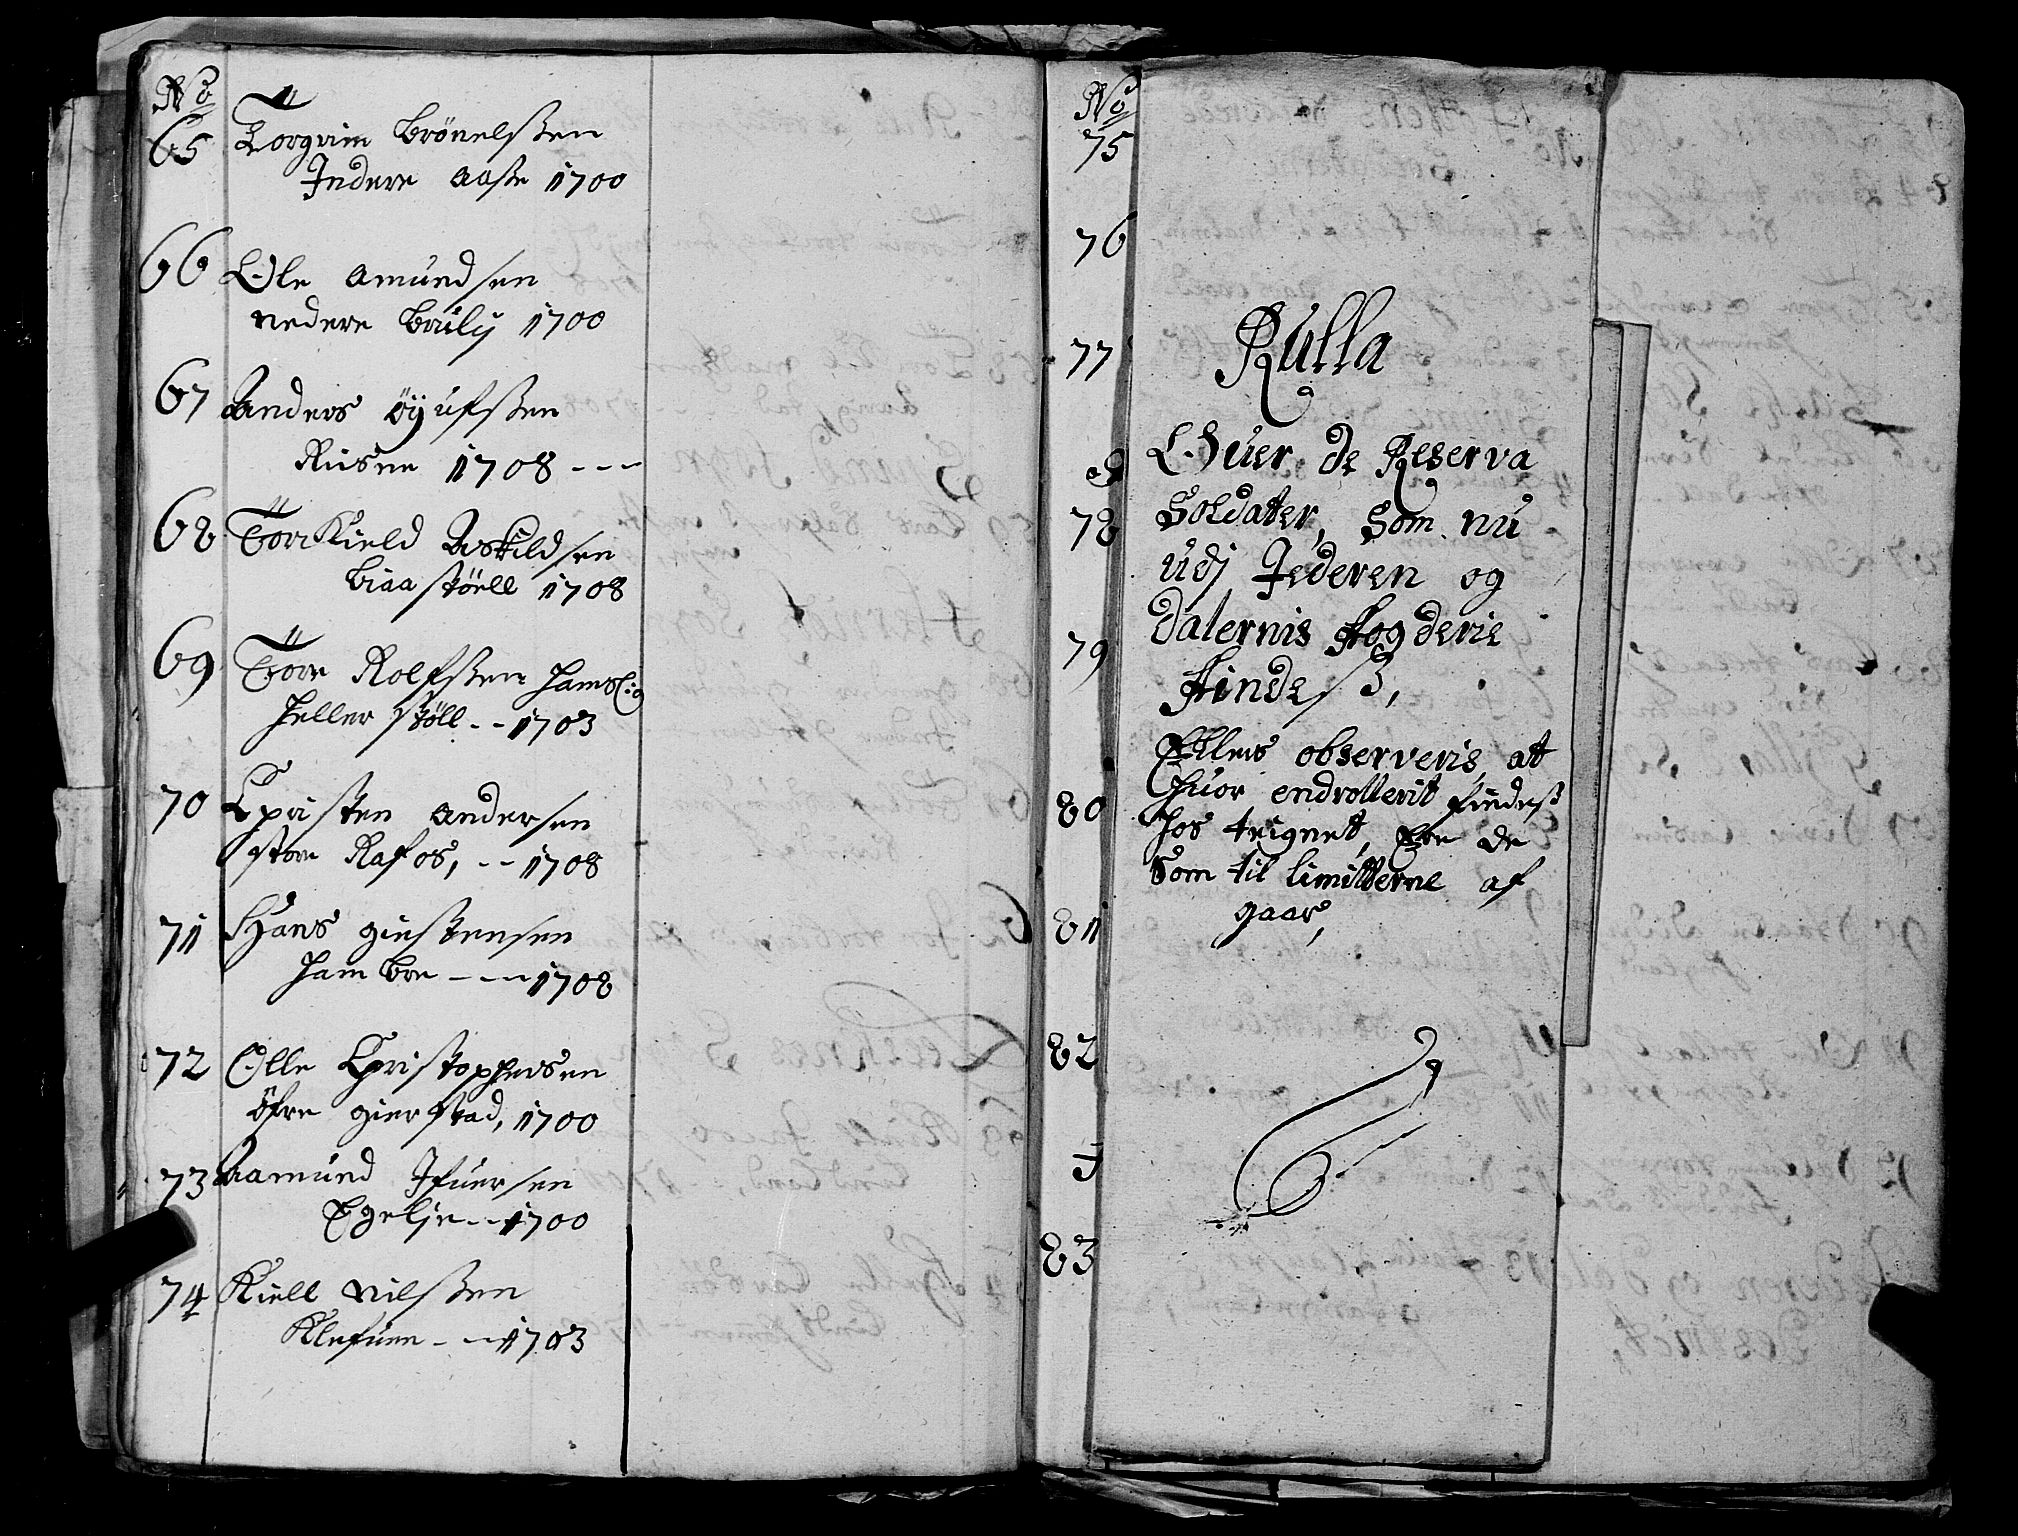 No
65 Torgrim Brönelssen
Indere Aase 1700
66 Ole Amundsen
nedere Bruly 1700
67 Anders Öyufssen
Riisen 1708 ---
68 Torkield Askildsen
biaastöell 1708
69 Tore Rolfssen hamb:g
heller støll -- 1703
70 Christen Andersen
store Rafos, -- 1708
71 Hans giestensen
ham bre --- 1708
72 Olle Christophersen
öfre gierstad, 1700
73 Aamund Ifuersen
Egelje -- 1700
74 Kiell Nilssen
Klefuen - -- 1703
No
75
76
77
78
79
80
81
82
83
Rulla
Ofuer de Reserva
Soldater, Som nu
udj Jederen og
Dalernis Fogderie
Findes,
Ellers observeris at
huor endrollerit findeß
hos teignet, Ere de
Som til limitterne af
gaar,